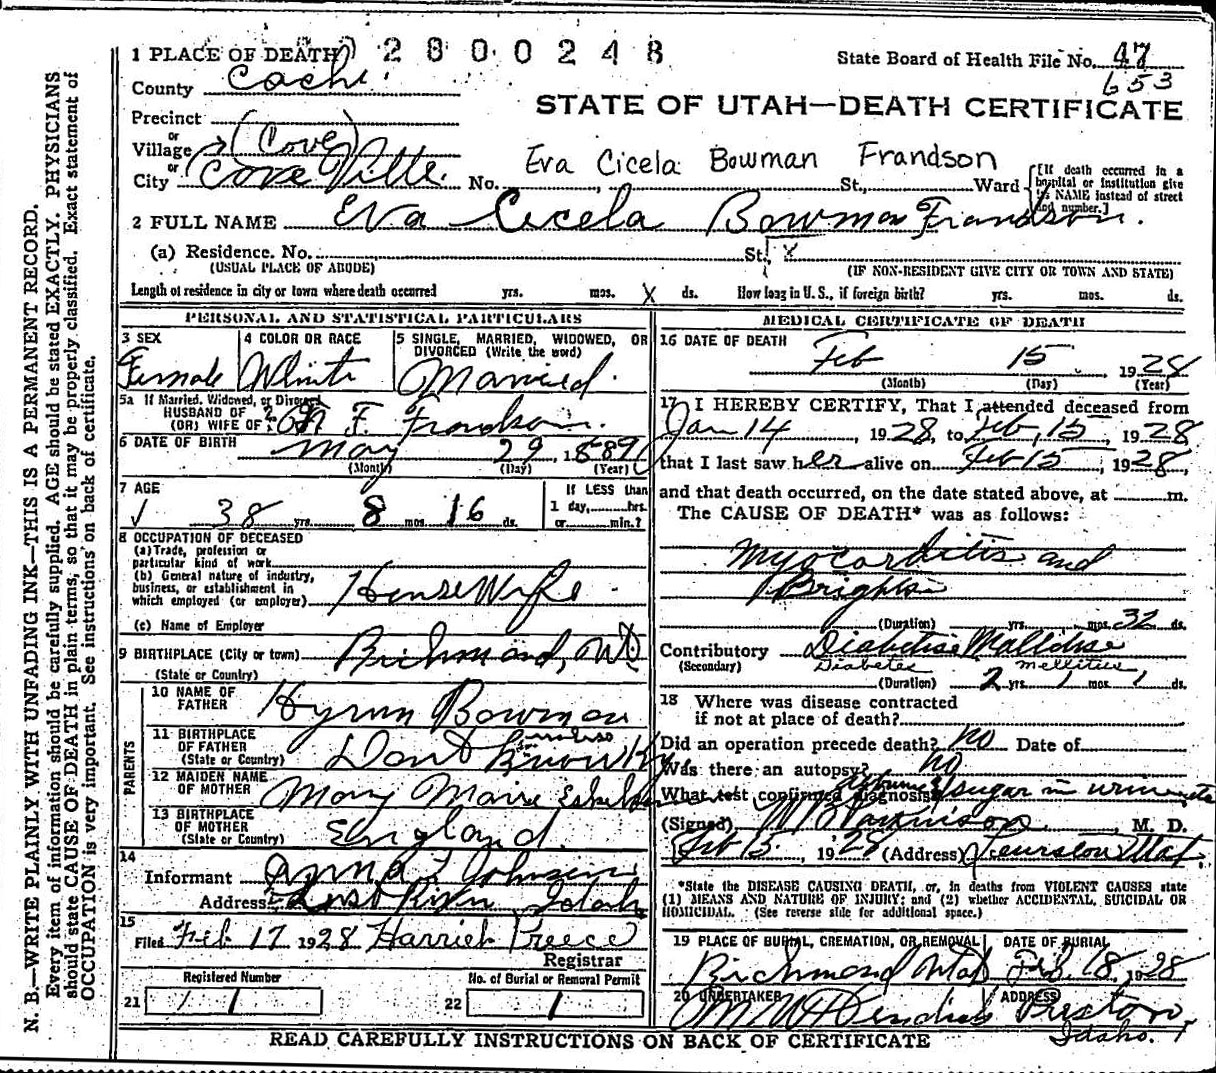 N. B.—WRITE PLAINLY WITH UNFADING INK—THIS IS A PERMANENT RECORD.
Every item of information should be carefully supplied. AGE should be stated EXACTLY. PHYSICIANS
should state CAUSE OF DEATH in plain terms, so that it may be properly classified. Exact statement of
OCCUPATION is very important. See instructions on back of certificate.
1 PLACE OF DEATH 2800248
State Board of Health File No. 47
653
County Cache
STATE OF UTAH—DEATH CERTIFICATE
Precinct
or
Village (Cove)
Eva Cicela Bowman Frandson
or
City Cove Ville No. St., Ward
[If death occurred in a
hospital or institution give
its NAME instead of street
and number.]
2 FULL NAME Eva Cicela Bowman Frandson.
(a) Residence. No. St. X
(USUAL PLACE OF ABODE) (IF NON-RESIDENT GIVE CITY OR TOWN AND STATE)
Length of residence in city or town where death occurred yrs. mos. X ds. How long in U. S., if foreign birth? yrs. mos. ds.
PERSONAL AND STATISTICAL PARTICULARS
3 SEX
Female
4 COLOR OR RACE
White
5 SINGLE, MARRIED, WIDOWED, OR
DIVORCED (Write the word)
Married.
5a If Married, Widowed, or Divorced
HUSBAND OF
(OR) WIFE OF F. Frandson.
6 DATE OF BIRTH May 29, 1889
(Month) (Day) (Year)
7 AGE
38 yrs. 8 mos. 16 ds.
If LESS than
1 day, hrs.
or min.?
8 OCCUPATION OF DECEASED
(a) Trade, profession or
particular kind of work
(b) General nature of industry,
business, or establishment in
which employed (or employer) House Wife
(c) Name of Employer
9 BIRTHPLACE (City or town) Richmond, Ut
(State or Country)
PARENTS
10 NAME OF
FATHER Hyrum Bowman
11 BIRTHPLACE
OF FATHER
(State or Country) Don't Know
12 MAIDEN NAME
OF MOTHER Mary Marie
13 BIRTHPLACE
OF MOTHER
(State or Country) England.
14
Informant Johnson
Address Idaho
15
Filed Feb 17 1928 Harriet Preece
Registrar
Registered Number
21 1
No. of Burial or Removal Permit
22 1
MEDICAL CERTIFICATE OF DEATH
16 DATE OF DEATH
Feb 15, 1928
(Month) (Day) (Year)
17 I HEREBY CERTIFY, That I attended deceased from
Jan 14, 1928, to Feb, 15, 1928
that I last saw her alive on Feb 15, 1928,
and that death occurred, on the date stated above, at m.
The CAUSE OF DEATH* was as follows:
Myocarditis and
Brights
(Duration) yrs. mos. 32 ds.
Contributory Diabetise Mallidse
(Secondary) Diabetes mellitus
(Duration) 2 yrs. 1 mos. 1 ds.
18 Where was disease contracted
if not at place of death?
Did an operation precede death? no Date of
Was there an autopsy? no
What test confirmed diagnosis? Albumen sugar in urine
(Signed) Parkinson, M. D.
Feb 15, 1928 (Address)
*State the DISEASE CAUSING DEATH, or, in deaths from VIOLENT CAUSES state
(1) MEANS AND NATURE OF INJURY; and (2) whether ACCIDENTAL, SUICIDAL OR
HOMICIDAL. (See reverse side for additional space.)
19 PLACE OF BURIAL, CREMATION, OR REMOVAL
Richmond Utah
DATE OF BURIAL
Feb. 18, 1928
20 UNDERTAKER
Hendricks
ADDRESS
Preston,
Idaho.
READ CAREFULLY INSTRUCTIONS ON BACK OF CERTIFICATE